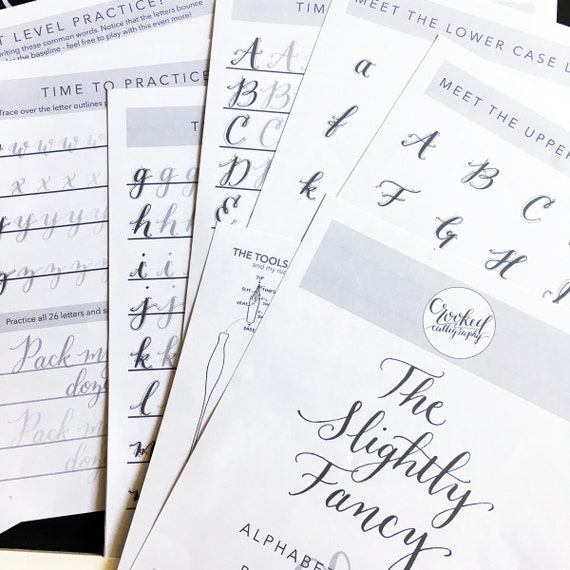 T LEVEL PRACTICE
writing these common words. Notice that the letters bounce
the baseline - feel free to play with this even more!
TIME TO PRACTICE
Trace over the letter outlines
w w w w
x x x x
y y y y y
z z z z
Practice all 26 letters and
Pack m
doz
Pack m
doz
T
g g g
h h h
i i i
j j j
k k k
l
m
TIM
A A
B B
C C
D D
E
MEET THE LOWER CASE L
a
f
k
MEET THE UPPER
A B C
F G H
THE TOOLS
and my
TIP
SLIT
TINES
VENT
BASE
Crooked
calligraphy
The
Slightly
Fancy
ALPHABET